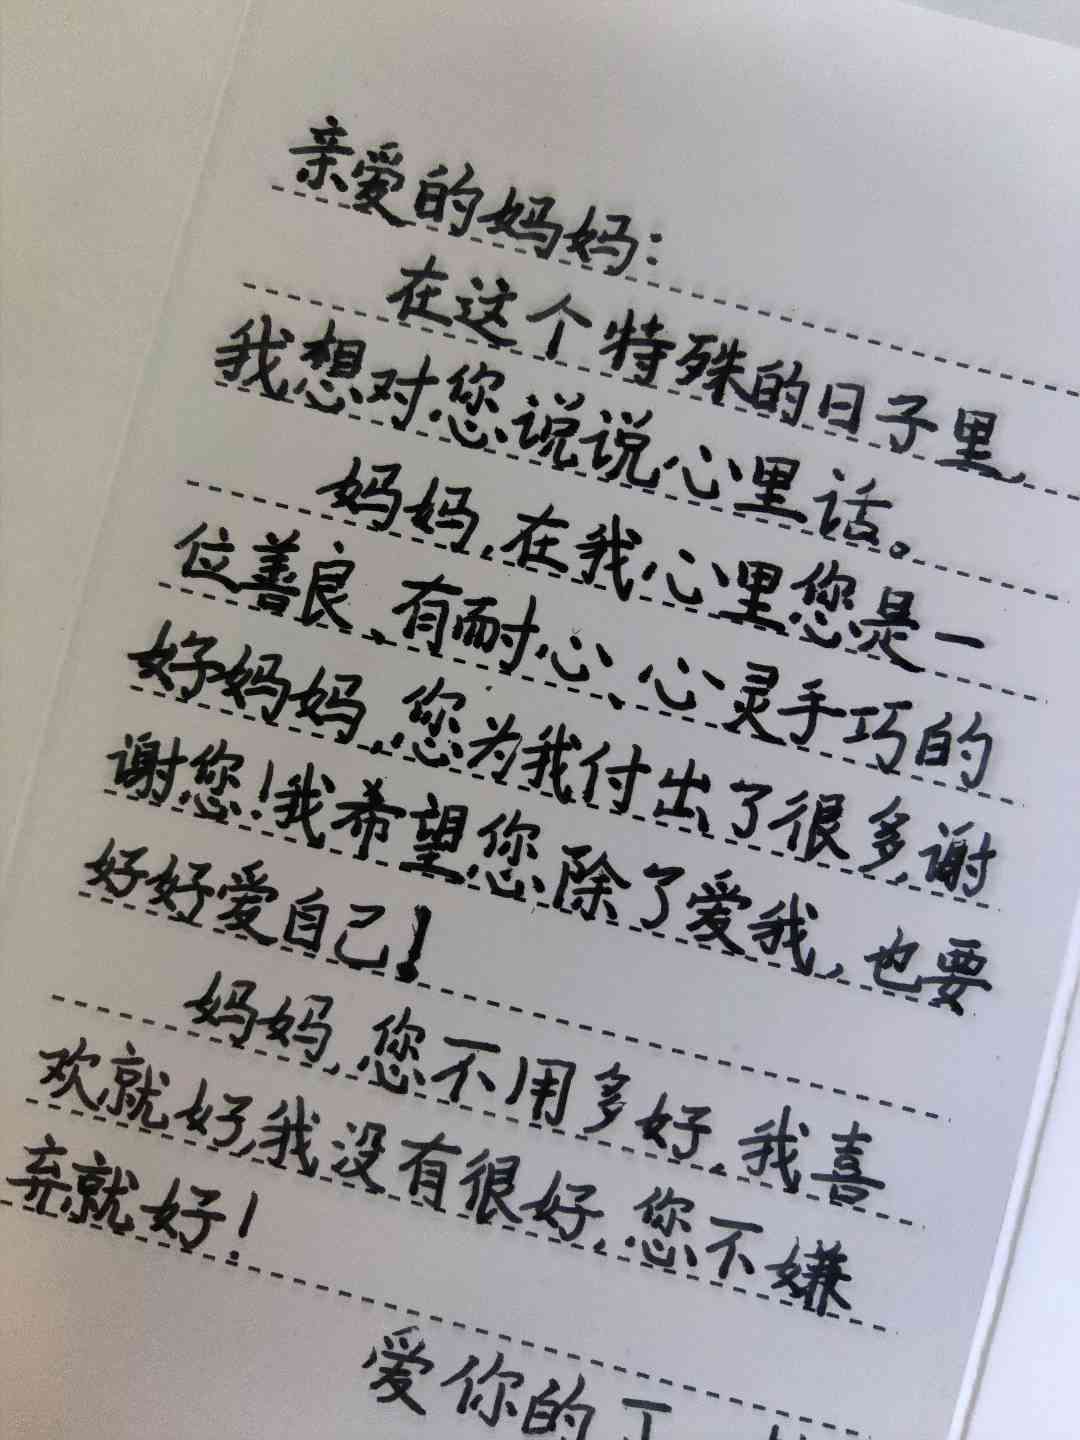 亲爱的妈妈：
在这个特殊的日子里，
我想对您说说心里话。
妈妈，在我心里您是一
位善良、有耐心、心灵手巧的
好妈妈，您为我付出了很多，谢
谢您！我希望您除了爱我，也要
好好爱自己！
妈妈，您不用多好，我喜
欢就好，我没有很好，您不嫌
弃就好！
爱你的